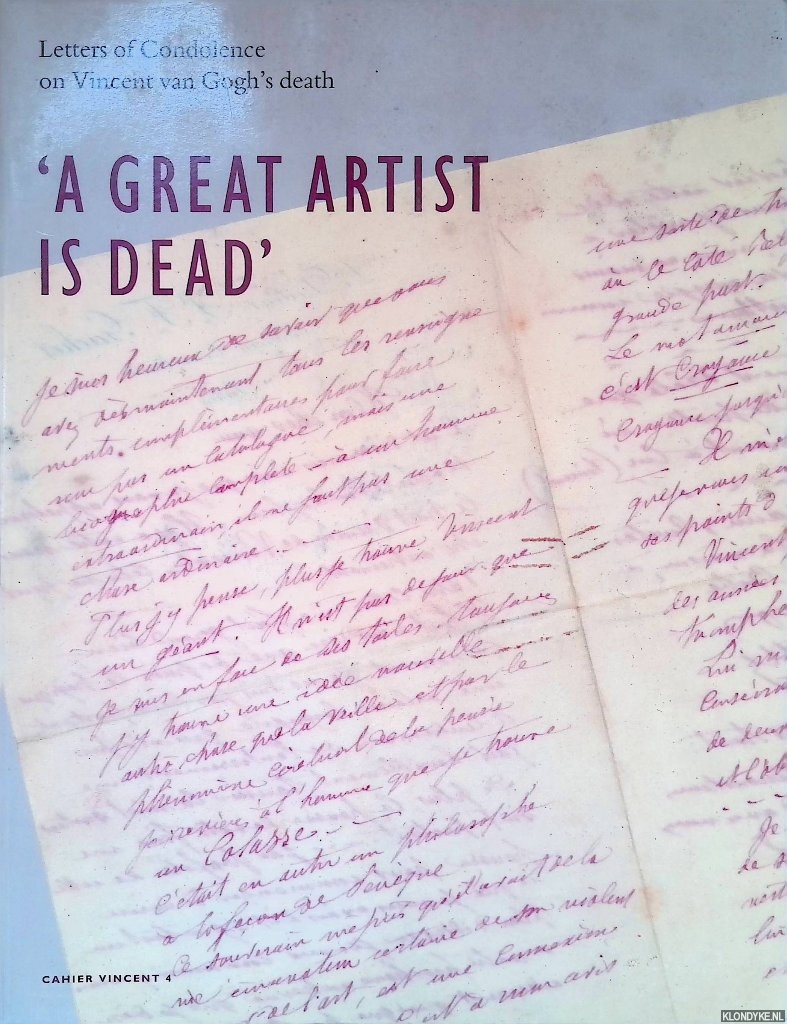 Letters of Condolence
on Vincent van Gogh's death
'A GREAT ARTIST
IS DEAD'
Je suis heureux de savoir que vous
avez dès maintenant, tous les renseigne
ments complimentaires pour faire
non pas un catalogue, mais une
biographie complète – à un homme
extraordinaire, il ne faut pas une
chose ordinaire. –
Plus j'y pense, plus je trouve, Vincent
un géant. Il n'est pas de jour que
je suis en face de ses toiles. toujours
j'y trouve une idée nouvelle
autre chose que la veille et par le
phénomène cérébral de la pensée
je reviens à l'homme que je trouve
un Colosse. –
C'était en outre un philosophe
à la façon de Sénèque
Ce souverain mépris qu'il avait de la
de son violent
de l'art, est une
à mon avis
une sorte de
où le côté
grande part.
Le mot amour
c'est Croyance
Croyance jusqu'
Il m'
que je vous
ses points
Vincent
des années
triomphe
Lui
de deux
et
Je
de
CAHIER VINCENT 4
KLONDYKE.NL